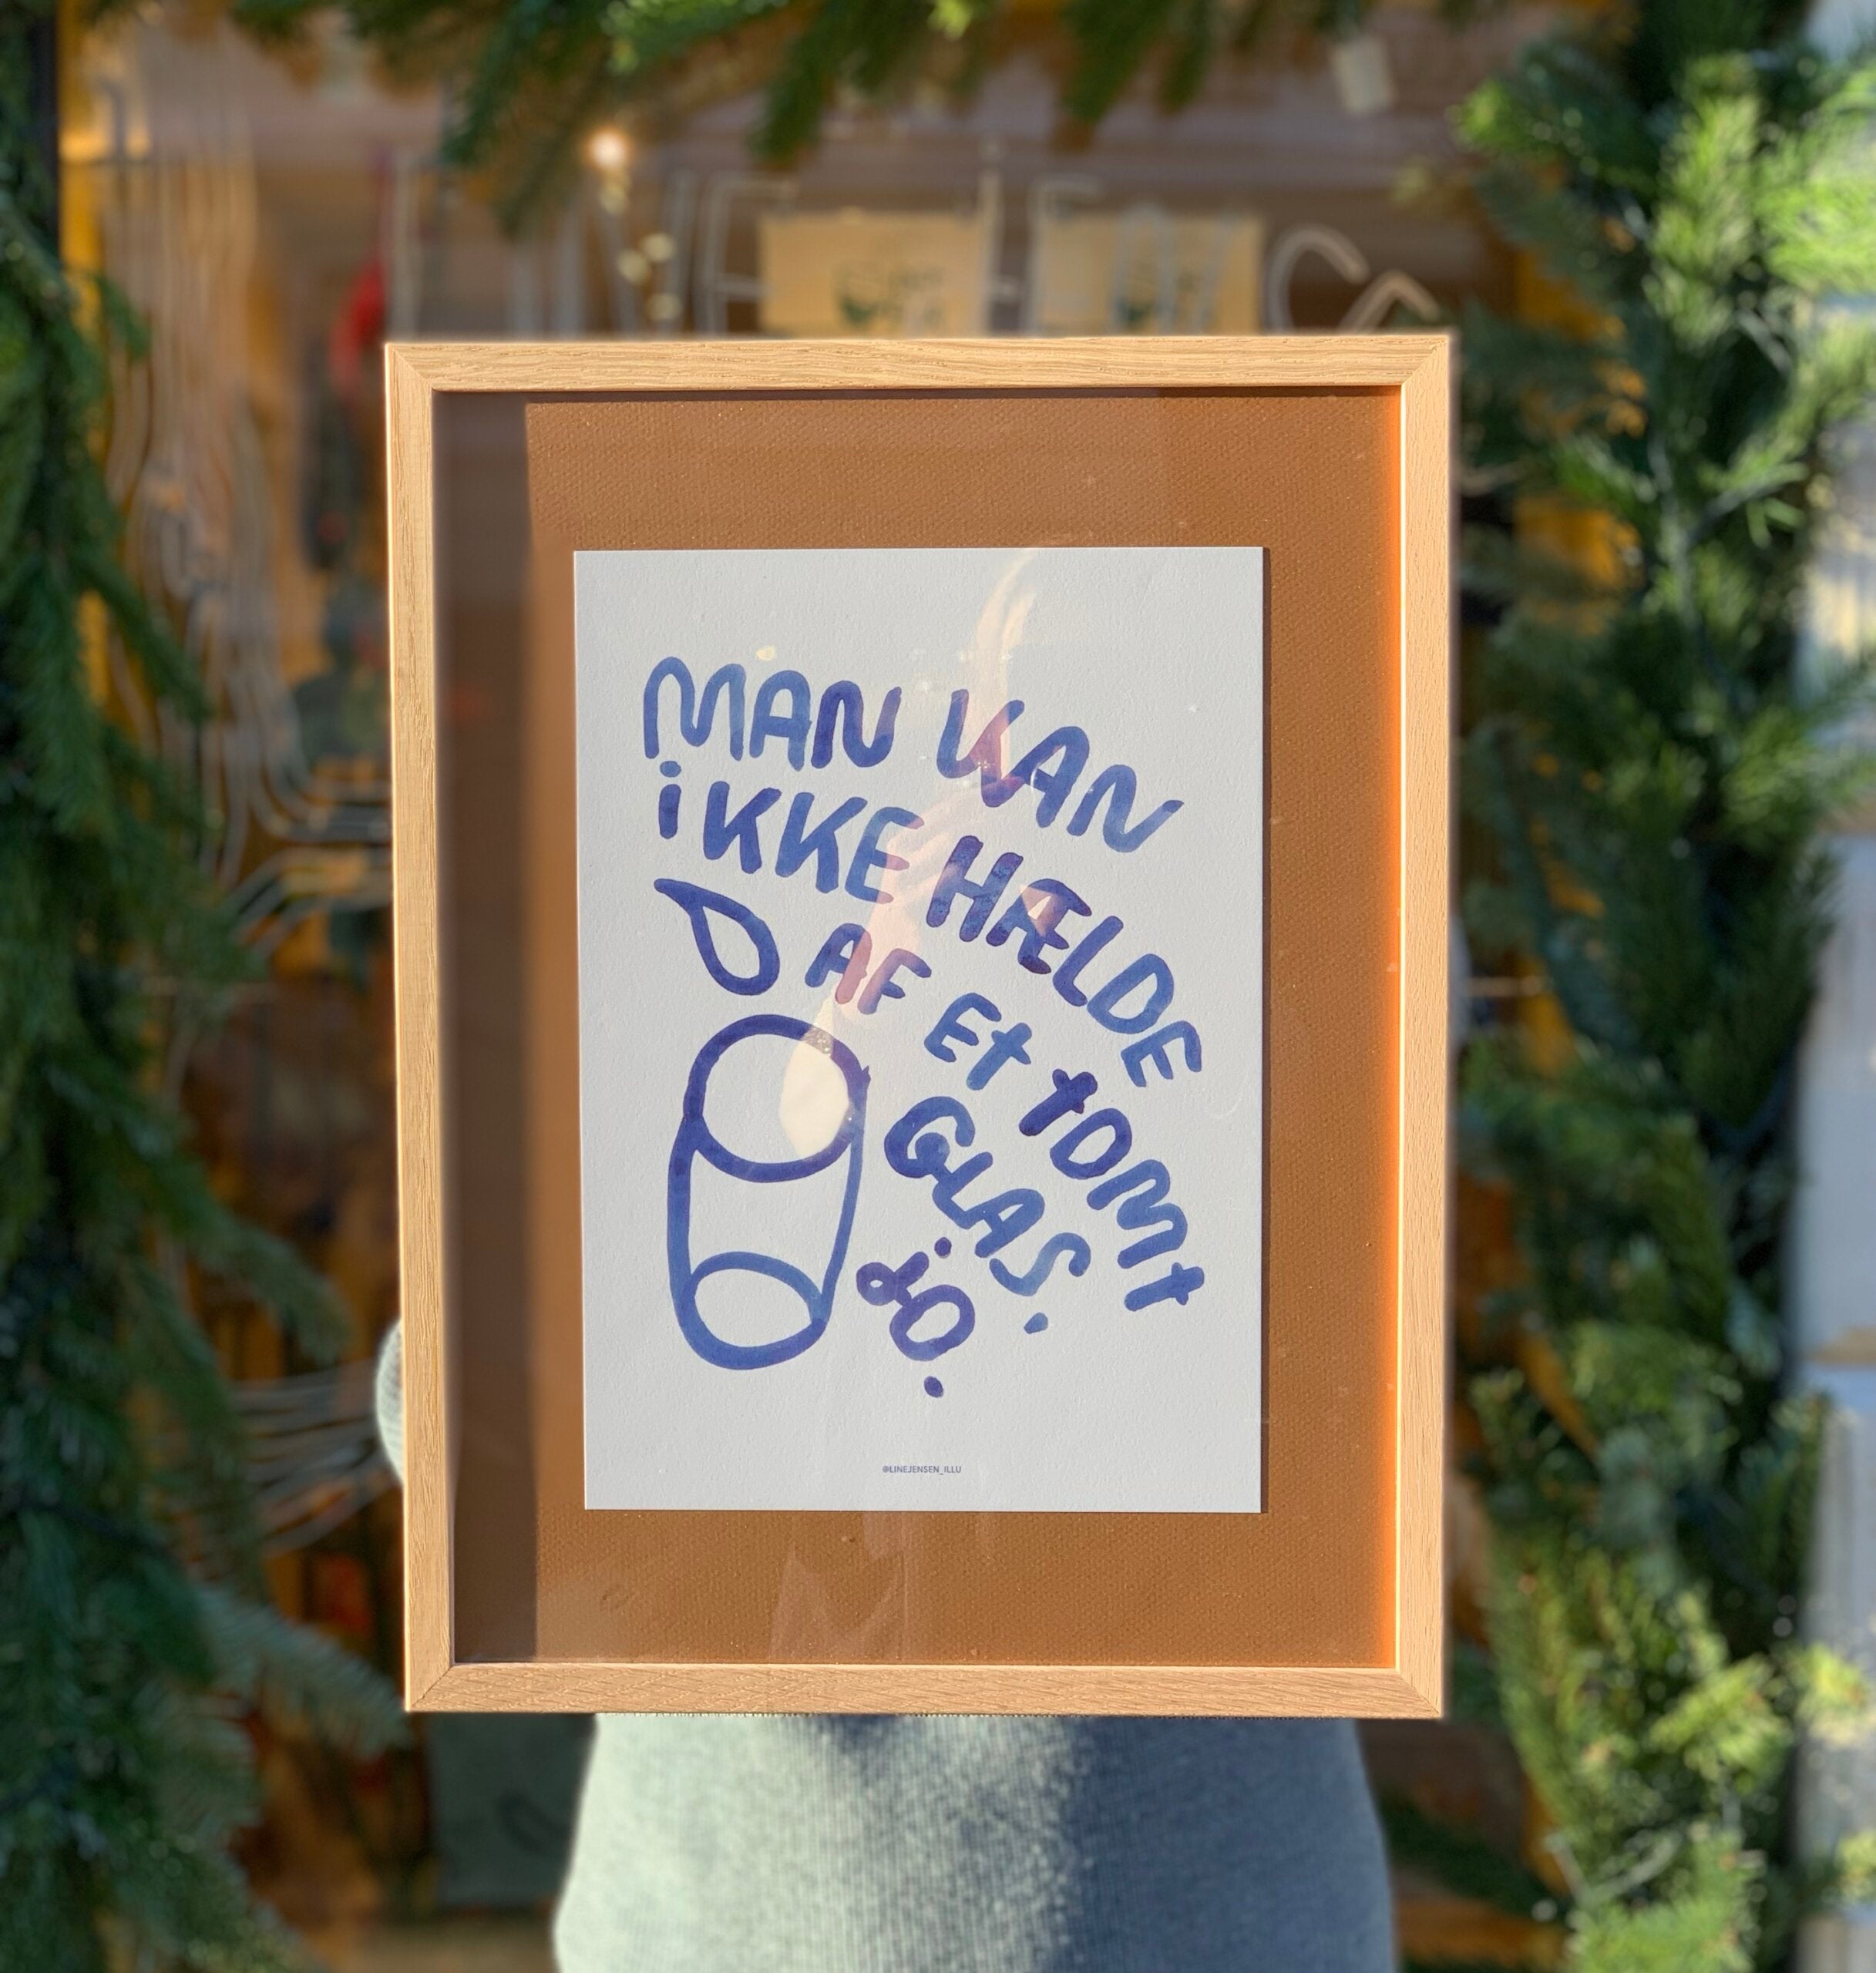 MAN KAN
iKKE HÆLDE
AF Et tOMt
GLAS.
@LINEJENSEN_ILLU